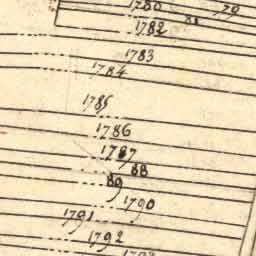 1780 79
1782 81
1783
1784
1785
1786
1787
88
89
1790
1791
1792